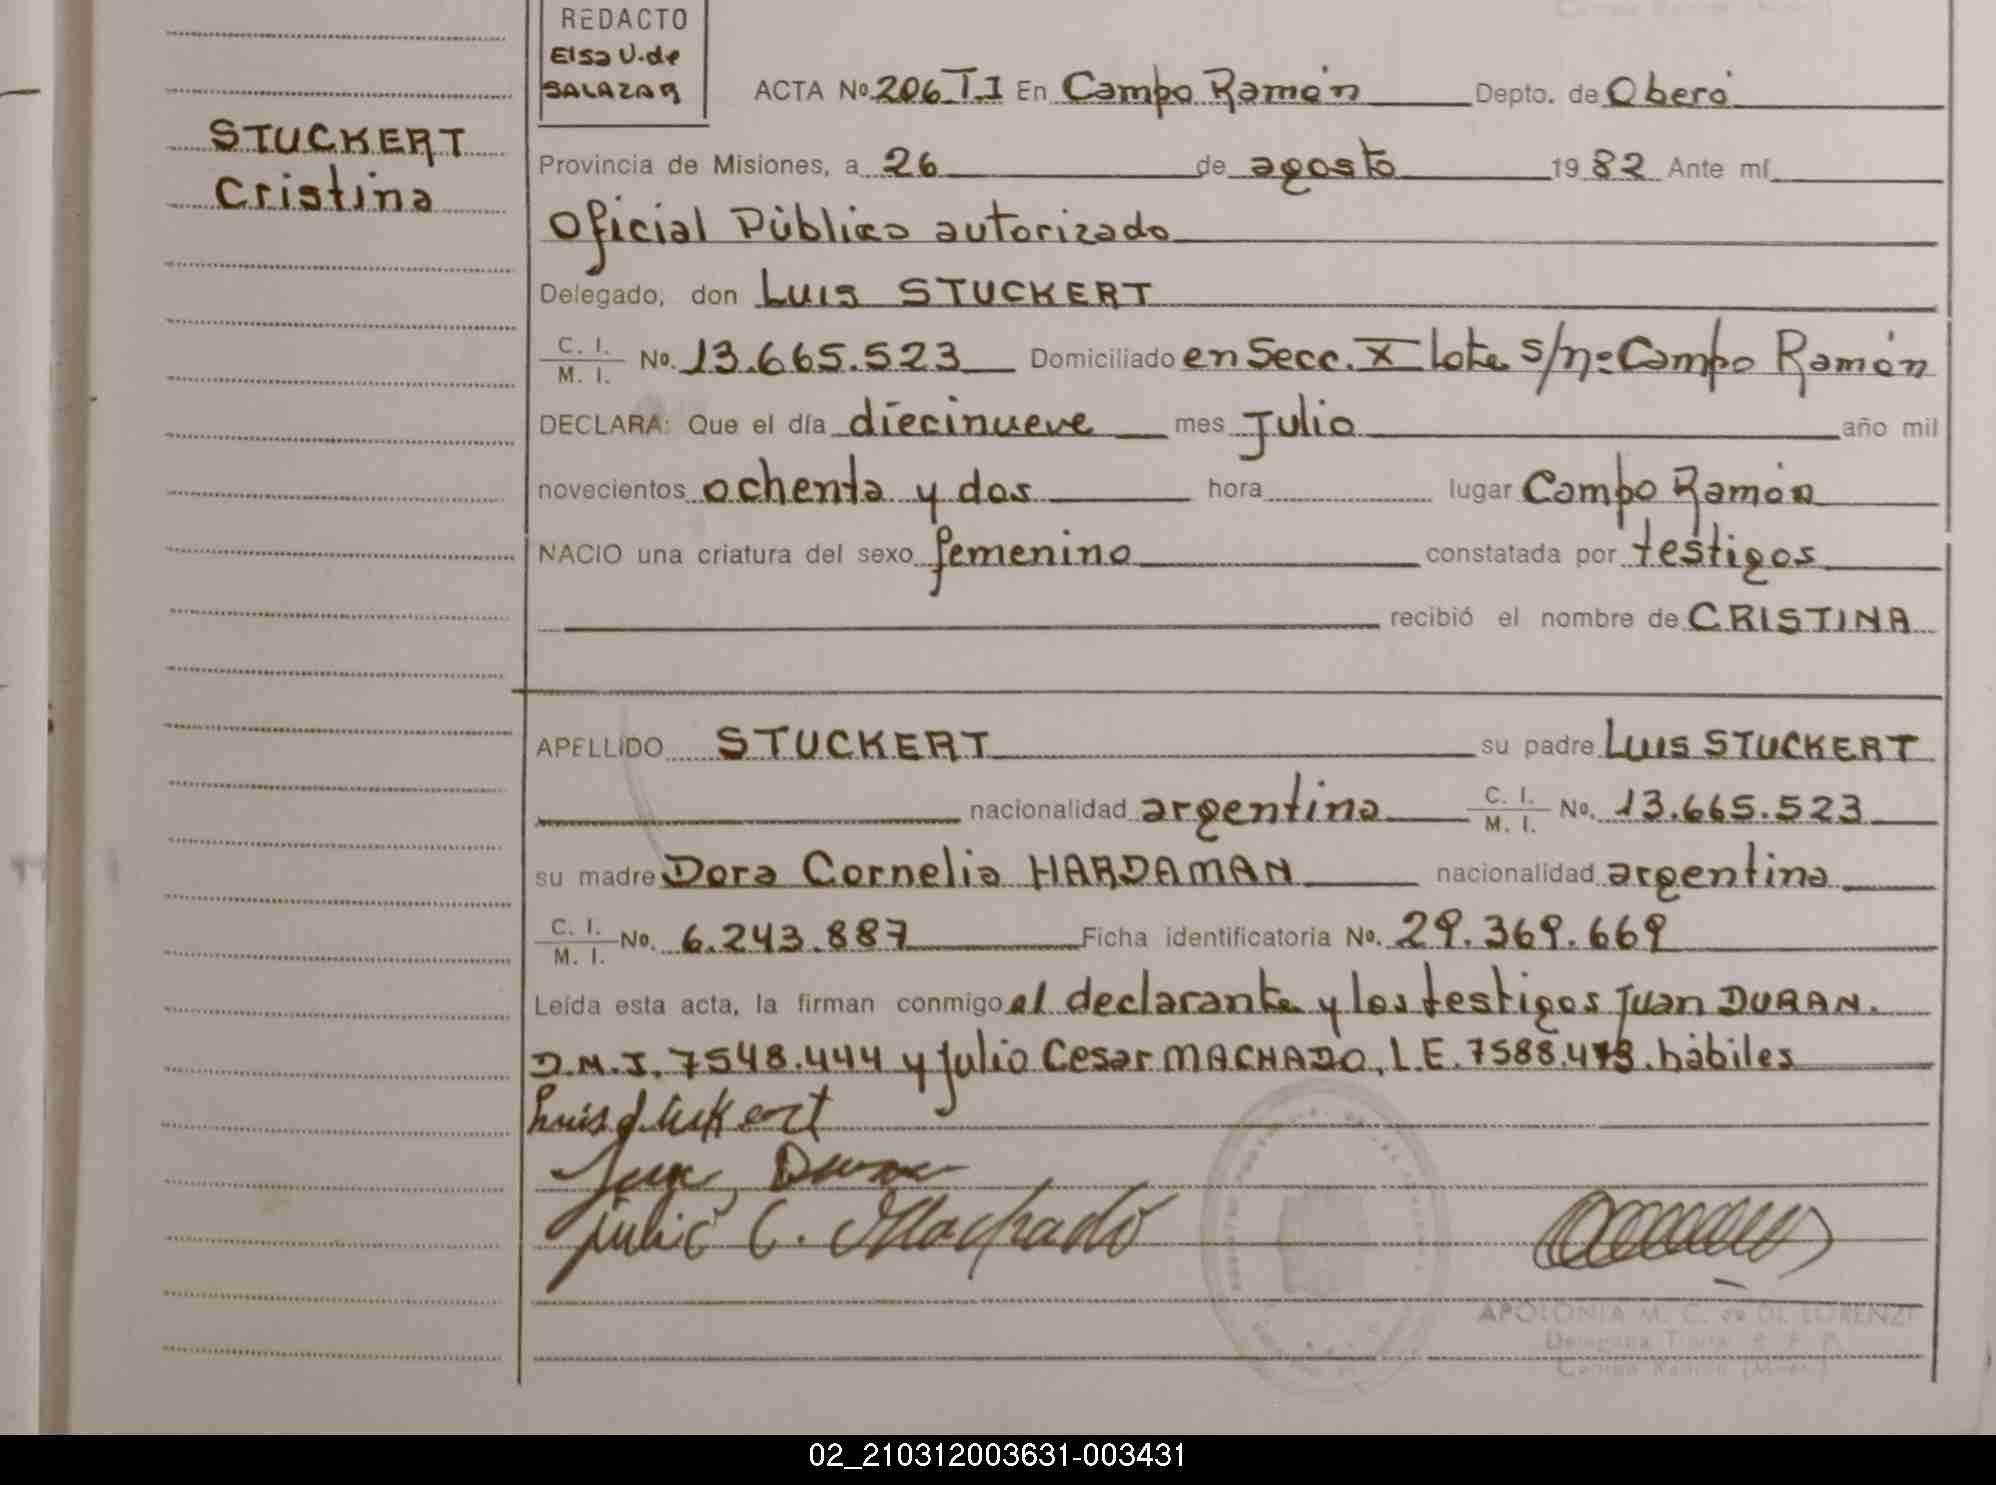 REDACTO
Elsa V. de
SALAZAR
STUCKERT
Cristina
ACTA No. 206 T.I En Campo Ramón Depto. de Oberá
Provincia de Misiones, a 26 de agosto 1982 Ante mí
Oficial Público autorizado
Delegado, don Luis STUCKERT
C. I. / M. I. No. 13.665.523 Domiciliado en Secc. X lote s/nº Campo Ramón
DECLARA: Que el día diecinueve mes Julio año mil
novecientos ochenta y dos hora lugar Campo Ramón
NACIO una criatura del sexo femenino constatada por testigos
recibió el nombre de CRISTINA
APELLIDO STUCKERT su padre Luis STUCKERT
nacionalidad argentina C. I. / M. I. No. 13.665.523
su madre Dora Cornelia HARDAMAN nacionalidad argentina
C. I. / M. I. No. 6.243.887 Ficha identificatoria No. 29.369.669
Leída esta acta, la firman conmigo el declarante y los testigos Juan DURAN.
D.M.I. 7548.444 y Julio Cesar MACHADO, L.E. 7588.473. hábiles
Luis Stuckert
Juan Duran
Julio C. Machado
APOLONIA M. C. de DI LORENZI
Delegada Titular
Campo Ramón (Mnes.)
02_210312003631-003431